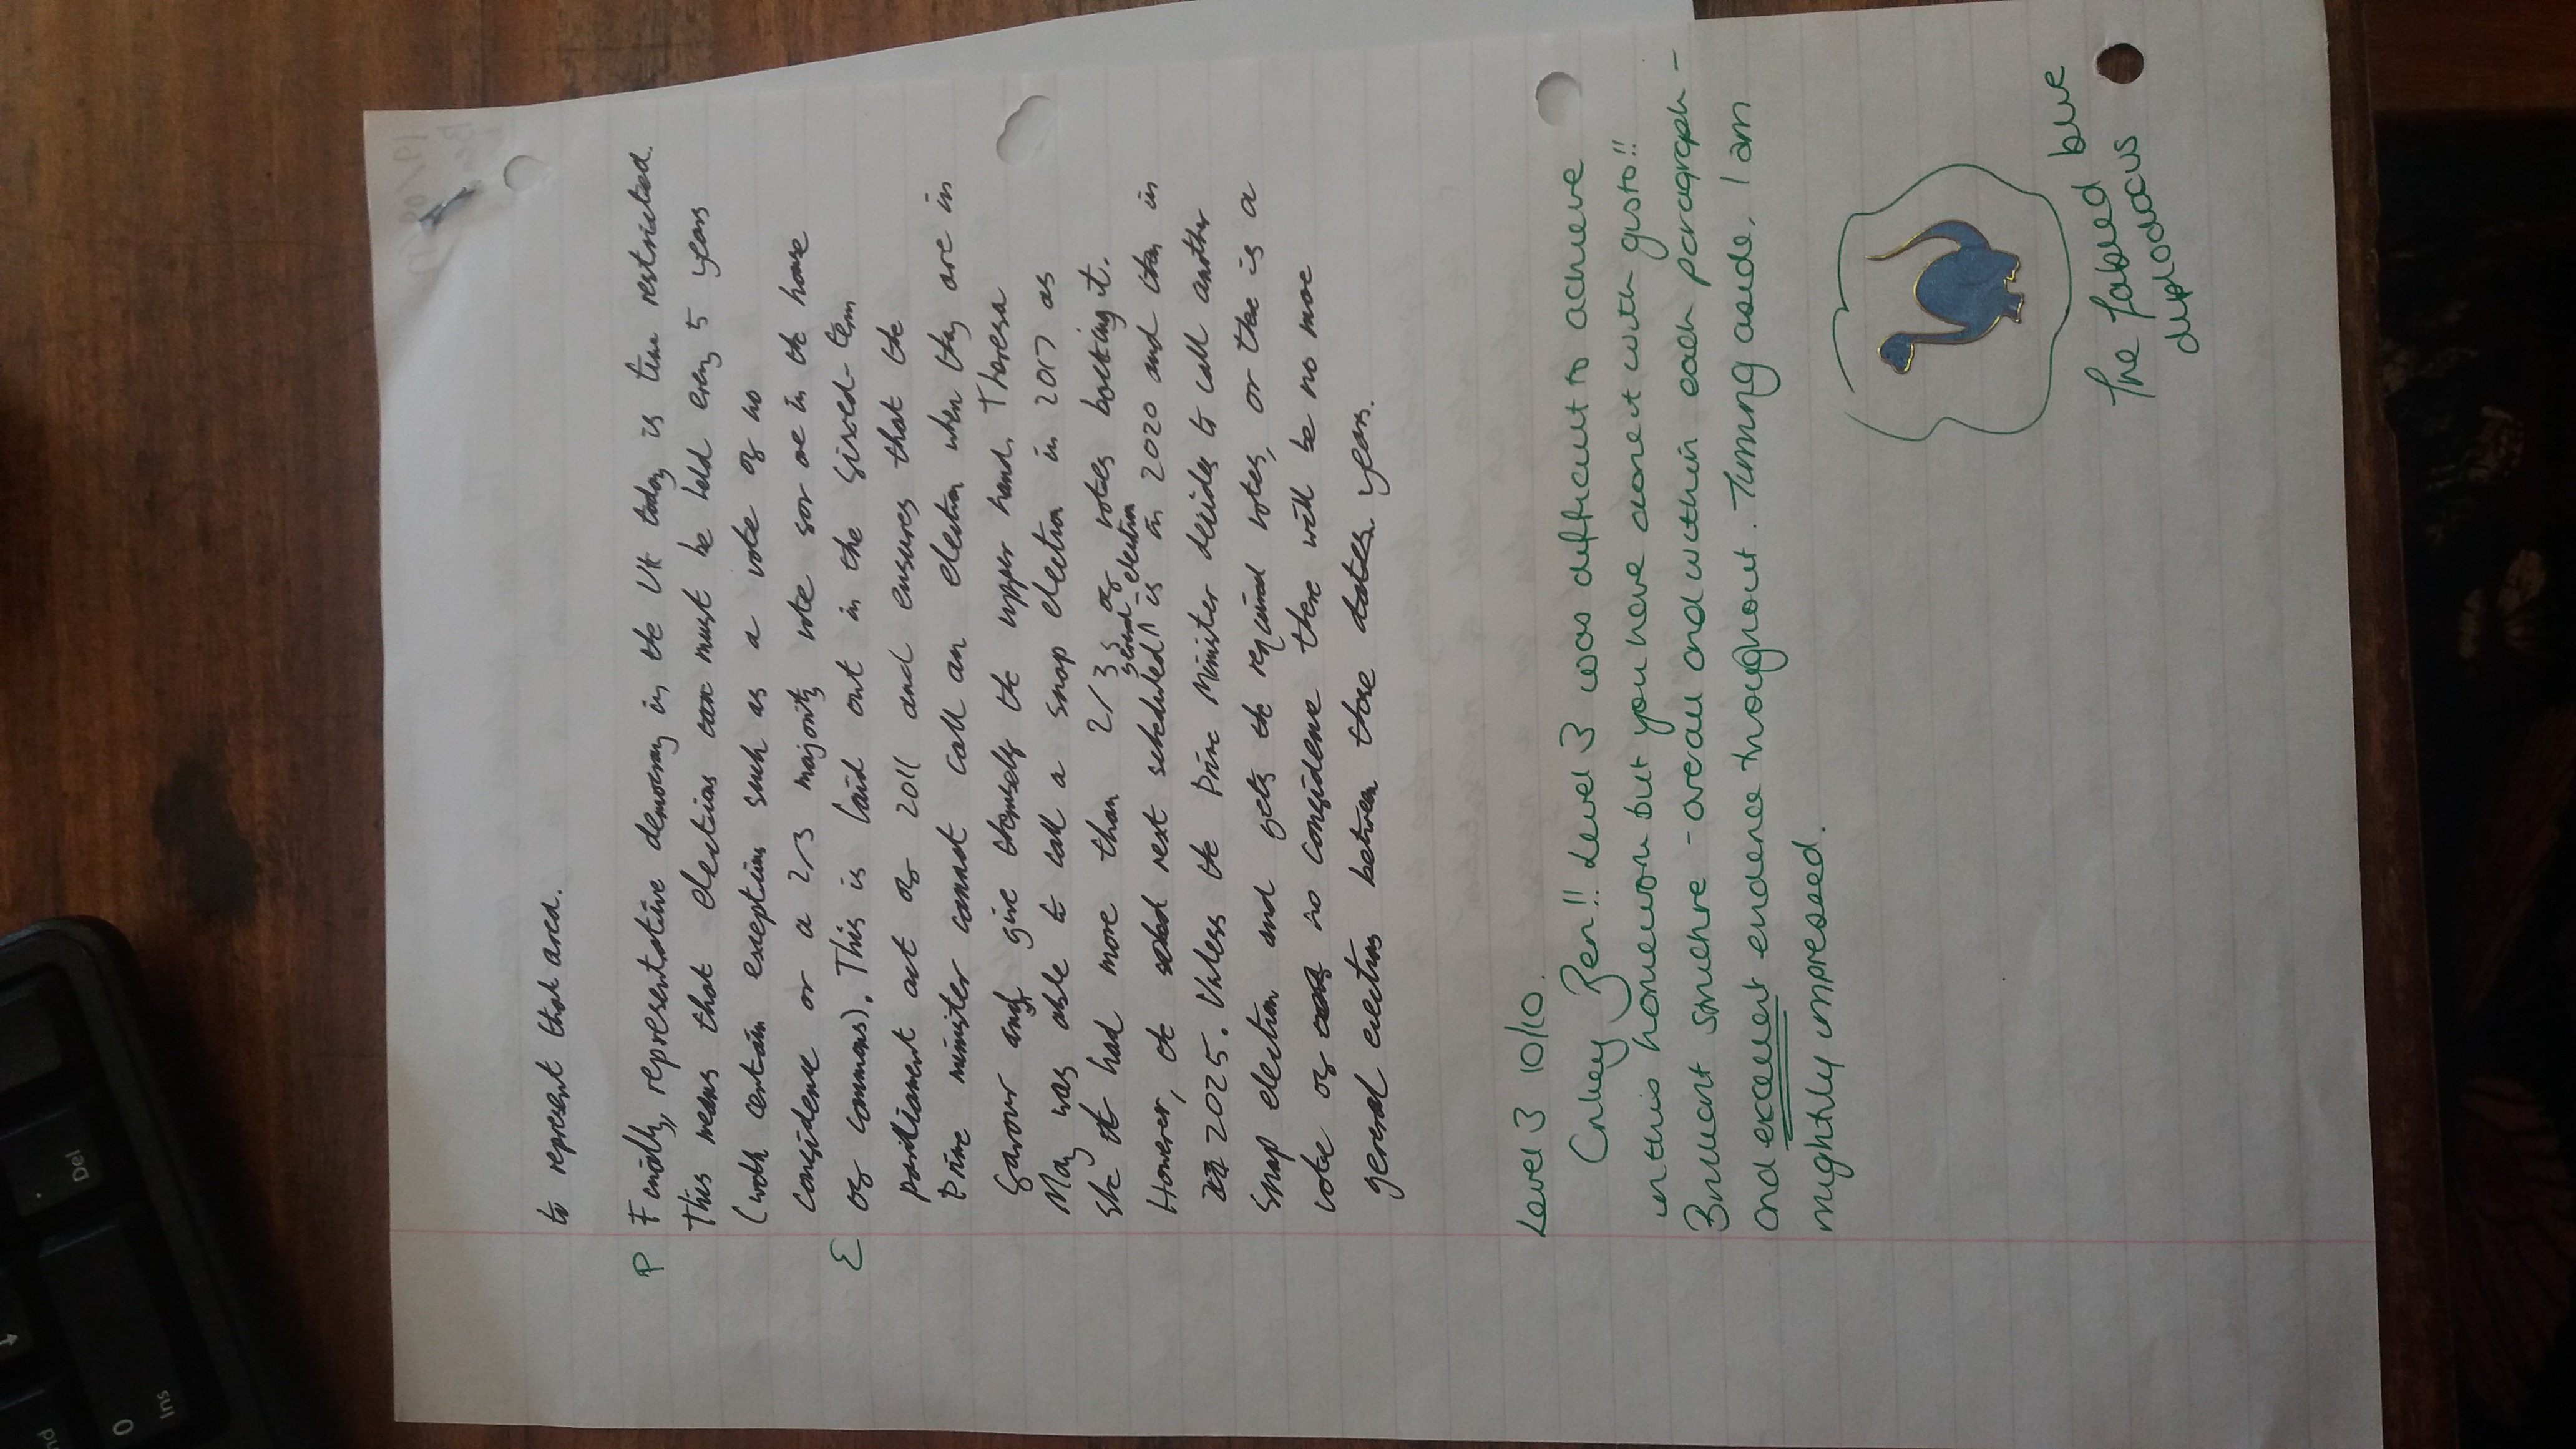 to represent that area.
P Finally, representative democracy in the UK today is time restricted.
This means that elections can must be held every 5 years
(with certain exceptions such as a vote of no
considence or a 2/3 majority vote sor one in the house
E of commons). This is laid out in the sixed-term
parliament act of 2011 and ensures that the
Prime minister cannot call an election when they are in
savour and give themself the upper hand. Theresa
May was able to call a snap election in 2017 as
she had more than 2/3s of votes backing it.
However, next scheduled general election is in 2020 and then in
2025. Unless the Prime Minister decides to call another
snap election and gets the required votes, or there is a
vote of no considence there will be no more
general elections between those dates years.
Level 3 10/10.
Crikey Ben!! Level 3 was difficult to achieve
in this homework but you have done it with gusto!!
Brilliant structure - overall and within each paragraph -
and excellent evidence throughout. Timing aside, I am
mightily impressed.
The fabled blue
diplodocus
Del
0
Ins